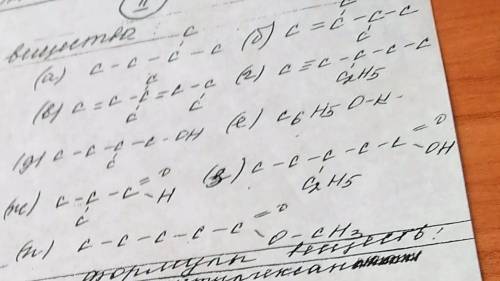 II
вещества:
(а) C - C - C - C
C
(б) C = C - C - C
C
C
(в) C = C - C = C - C
C
C
C
(г) C ≡ C - C - C - C
C2H5
(д) C - C - C - C - OH
C
(е) C6H5 O-H
(ж) C - C - C = O
- H
C
(з) C - C - C - C - C = O
- OH
C2H5
(и) C - C - C - C - C = O
O - CH3
формулы веществ: